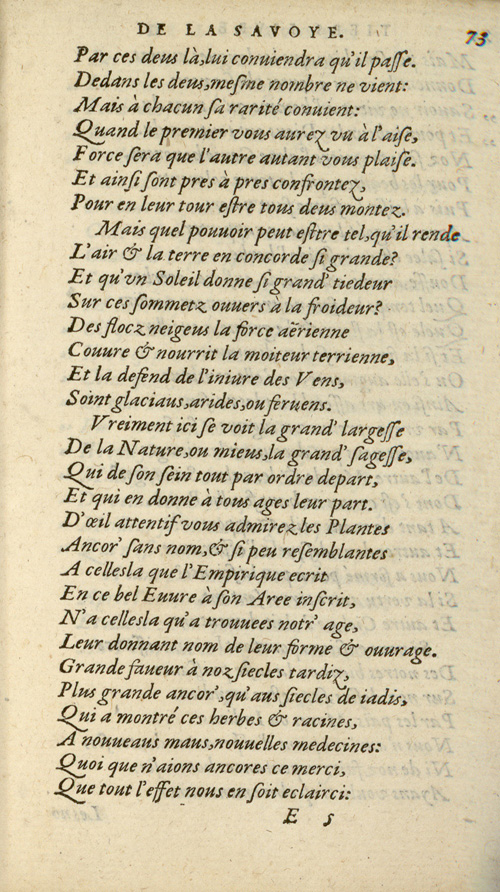 DE LA SAVOYE. 73
Par ces deus là, lui conuiendra qu'il passe.
Dedans les deus, mesme nombre ne vient:
Mais à chacun sa rarité conuient:
Quand le premier vous aurez vu à l'aise,
Force sera que l'autre autant vous plaise.
Et ainsi sont pres à pres confrontez,
Pour en leur tour estre tous deus montez.
Mais quel pouuoir peut esttre tel, qu'il rende
L'air & la terre en concorde si grande?
Et qu'vn Soleil donne si grand' tiedeur
Sur ces sommetz ouuers à la froideur?
Des flocz neigeus la force aërienne
Couure & nourrit la moiteur terrienne,
Et la defend de l'iniure des Vens,
Soint glaciaus, arides, ou feruens.
Vreiment ici se voit la grand' largesse
De la Nature, ou mieus, la grand' sagesse,
Qui de son sein tout par ordre depart,
Et qui en donne à tous ages leur part.
D'œil attentif vous admirez les Plantes
Ancor' sans nom, & si peu resemblantes
A cellesla que l'Empirique ecrit
En ce bel Euure à son Aree inscrit,
N'a cellesla qu'a trouuees notr' age,
Leur donnant nom de leur forme & ouurage.
Grande faueur à noz siecles tardiz,
Plus grande ancor', qu'aus siecles de iadis,
Qui a montré ces herbes & racines,
A nouueaus maus, nouuelles medecines:
Quoi que n'aions ancores ce merci,
Que tout l'effet nous en soit eclairci:
E 5